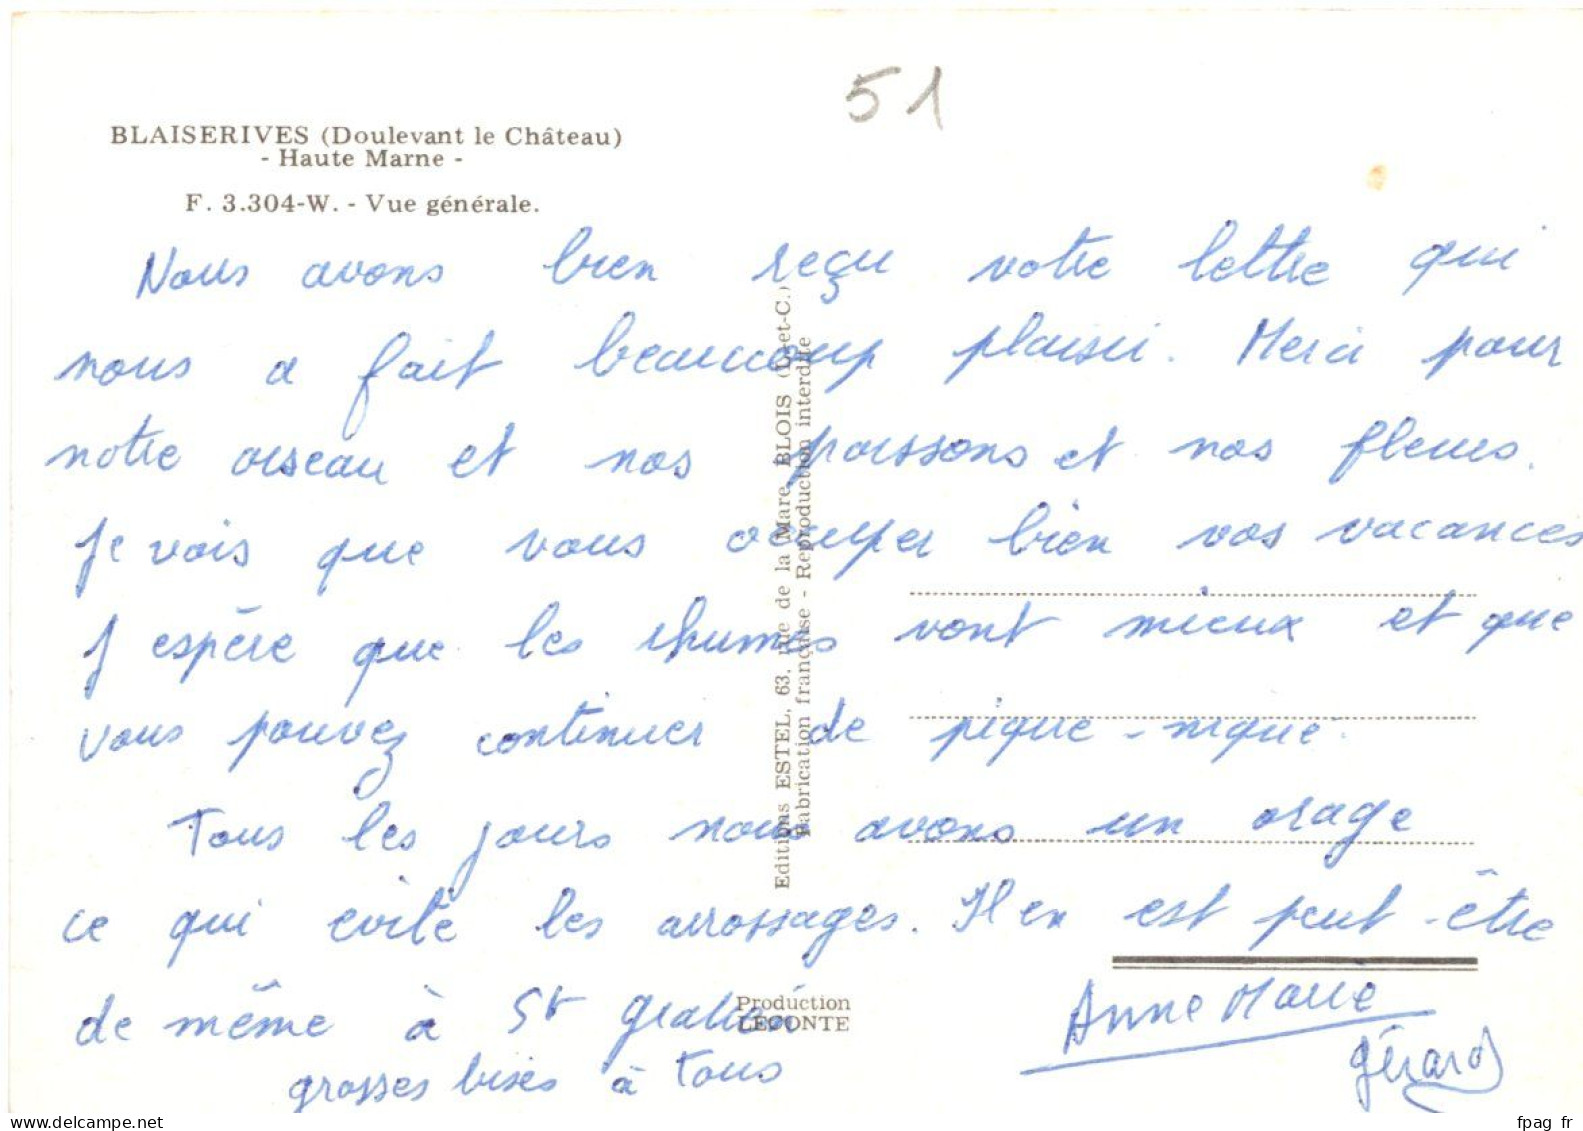 51
BLAISERIVES (Doulevant le Château)
- Haute Marne -
F. 3.304-W. - Vue générale.
Nous avons bien reçu votre lettre qui
nous a fait beaucoup plaisir. Merci pour
notre oiseau et nos poissons et nos fleurs.
Je vois que vous occuper bien vos vacances
J espère que les rhumes vont mieux et que
vous pouvez continuer de pique-nique.
Tous les jours nous avons un orage
ce qui evite les arrossages. Il en est peut-être
de même à St Gratien
grosses bises à Tous
Anne Marie
Gérard
Editions ESTEL, 63, rue de la Mare BLOIS (L.-et-C.)
Fabrication française - Reproduction interdite
Production
LECONTE
fpag_fr